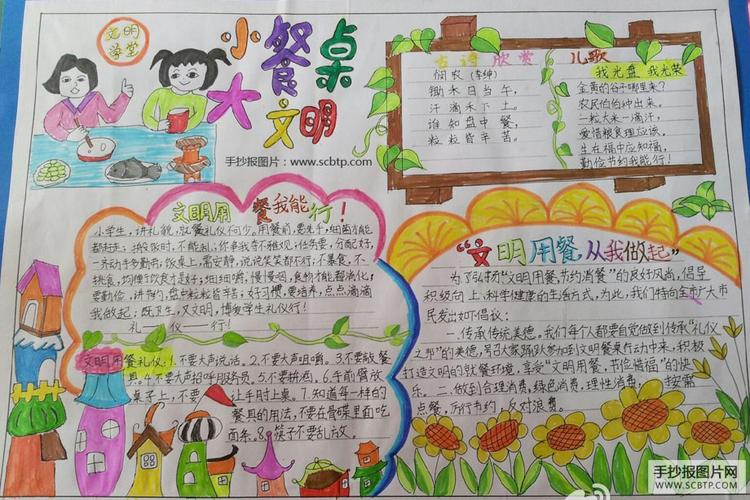 文明
学堂
小餐桌
大文明
手抄报图片：www.scbtp.com
古诗欣赏 儿歌
悯农 (李绅)
锄禾日当午，
汗滴禾下土。
谁知盘中餐，
粒粒皆辛苦。
我光盘 我光荣
金黄的谷子哪里来？
农民伯伯种出来。
一粒大米一滴汗，
爱惜粮食理应该。
生在福中应知福，
勤俭节约我能行！
文明用餐我能行！
小学生，讲礼貌，就餐礼仪不可少。用餐前，要洗手，细菌才能
都赶走；
不能乱，你争我夺不雅观；任务要，分配好，
一齐动手多勤劳。饭桌上，需安静，说说笑笑都不行；不暴食，不
挑食，均衡饮食才是好；细细嚼，慢慢咽，食物才能超消化；
要勤俭，讲节约，盘中粒粒皆辛苦；好习惯，要培养，点点滴滴
我做起；既卫生，又文明，博爱学生礼仪行！
礼——仪——行！
文明用餐礼仪：1.不要大声说话。2.不要大声咀嚼。3.不要敲餐
具。4.不要大声招呼服务员。5.不要拼酒。6.手前臂放
桌子上，不要让手肘上桌。7.知道每一样的
餐具的用法，不要在骨碟里面吃
面条。8.筷子不要乱放。
“文明用餐 从我做起”
为了弘扬“文明用餐，节约消餐”的良好风尚，倡导
积极向上、科学健康的生活方式，为此，我们特向全市广大市
民发出如下倡议：
一.传承传统美德。我们每个人都要自觉做到传承“礼仪
之邦”的美德，号召大家踊跃参加到文明餐桌行动中来，积极
打造文明的就餐环境，享受“文明用餐，节俭惜福”的快
乐。二.做到合理消费，绿色消费，理性消费。按需
点餐，厉行节约，反对浪费。
手抄报图片网
WWW.SCBTP.COM